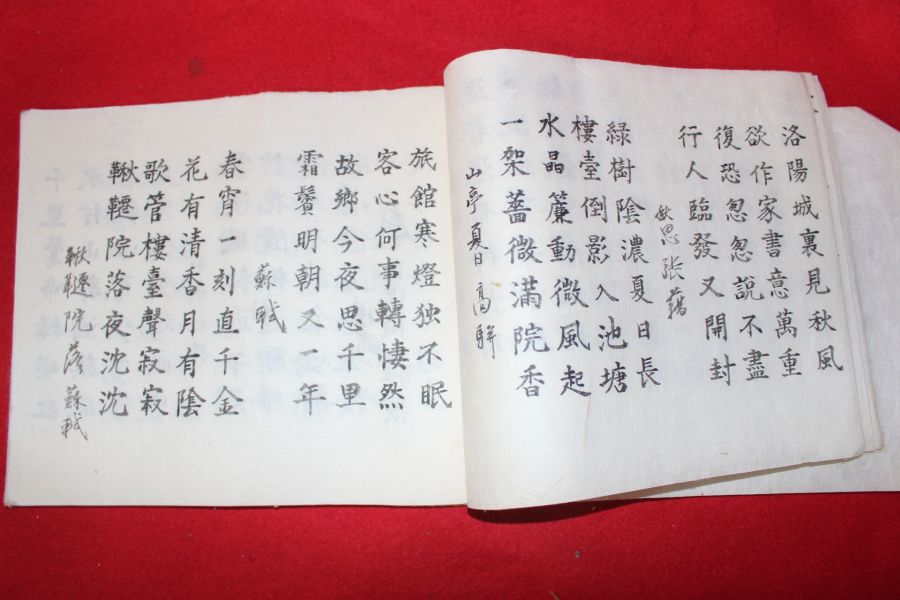 洛陽城裏見秋風
欲作家書意萬重
復恐忽忽說不盡
行人臨發又開封
秋思 張籍
綠樹陰濃夏日長
樓臺倒影入池塘
水晶簾動微風起
一架薔微滿院香
山亭夏日 高駢
旅館寒燈独不眠
客心何事轉悽然
故鄉今夜思千里
霜鬢明朝又一年
蘇軾
春宵一刻直千金
花有清香月有陰
歌管樓臺聲寂寂
鞦韆院落夜沈沈
鞦韆院落 蘇軾